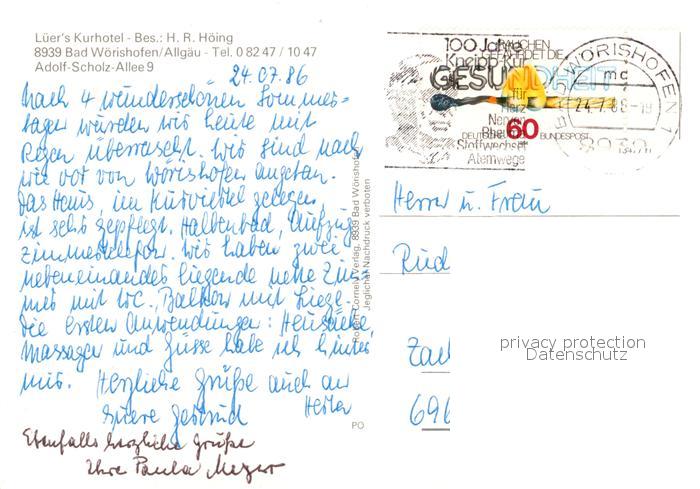 Lüer's Kurhotel - Bes.: H. R. Höing
8939 Bad Wörishofen/Allgäu - Tel. 0 82 47 / 10 47
Adolf-Scholz-Allee 9
24.07.86
Nach 4 wunderschönen Sommer=
tagen wurden wir heute mit
Regen überrascht. Wir sind nach
wie vor von Wörishofen angetan.
Das Haus im Kurviertel gelegen,
ist sehr gepflegt. Hallenbad, Aufzug,
Zimmertelefon. Wir haben zwei
nebeneinander liegende nette Zim=
mer mit WC., Balkon mit Liege.
Die ersten Anwendungen: Heusäcke,
Massagen und Güsse habe ich hinter
mir. Herzliche Grüße auch an
Ihre
Ebenfalls herzliche Grüße
Ihre Paula Meyer
PO
Robert Cornely Verlag, 8939 Bad Wörishofen
Jeglicher Nachdruck verboten
100 Jahre
Kneipp-Kur
für
Herz
Nerven
Rheuma
Stoffwechsel
Atemwege
RAUCHEN
GEFÄHRDET DIE
GESUNDHEIT
DEUTSCHE BUNDESPOST
60
BAD WÖRISHOFEN 1
mc
24.7.86-19
8939
Herrn u. Frau
Rud
Zac
696
privacy protection
Datenschutz